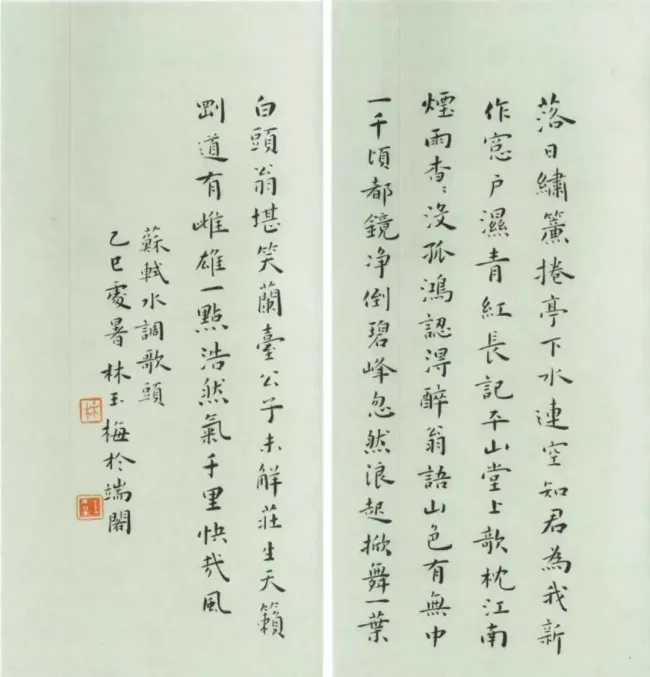 落日繡簾捲亭下水連空知君為我新
作窓戶濕青紅長記平山堂上欹枕江南
煙雨杳〻沒孤鴻認得醉翁語山色有無中
一千頃都鏡净倒碧峰忽然浪起掀舞一葉
白頭翁堪笑蘭臺公子未觧莊生天籟
剛道有雌雄一點浩然氣千里快哉風
蘇軾水調歌頭
乙巳處暑林玉梅於端閣
林